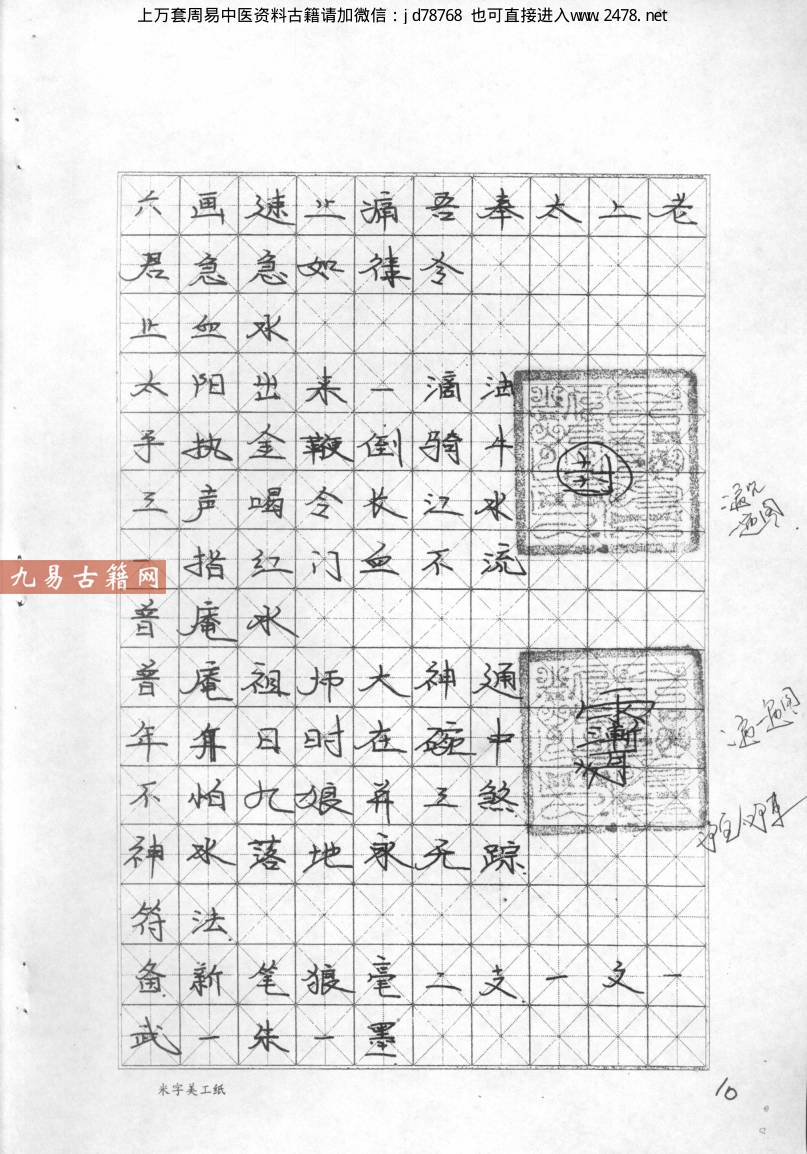 上万套周易中医资料古籍请加微信：jd78768 也可直接进入www.2478.net
六画速止痛吾奉太上老
君急急如律令
止血水
太阳出来一滴油
手执金鞭倒骑牛
三声喝令长江水
一指红门血不流
普庵水
普庵祖师大神通
年月日时在碗中
不怕九娘并三煞
神水落地永无踪
符法
备新笔狼毫二支一文一
武一朱一墨
九易古籍网
米字美工纸
10